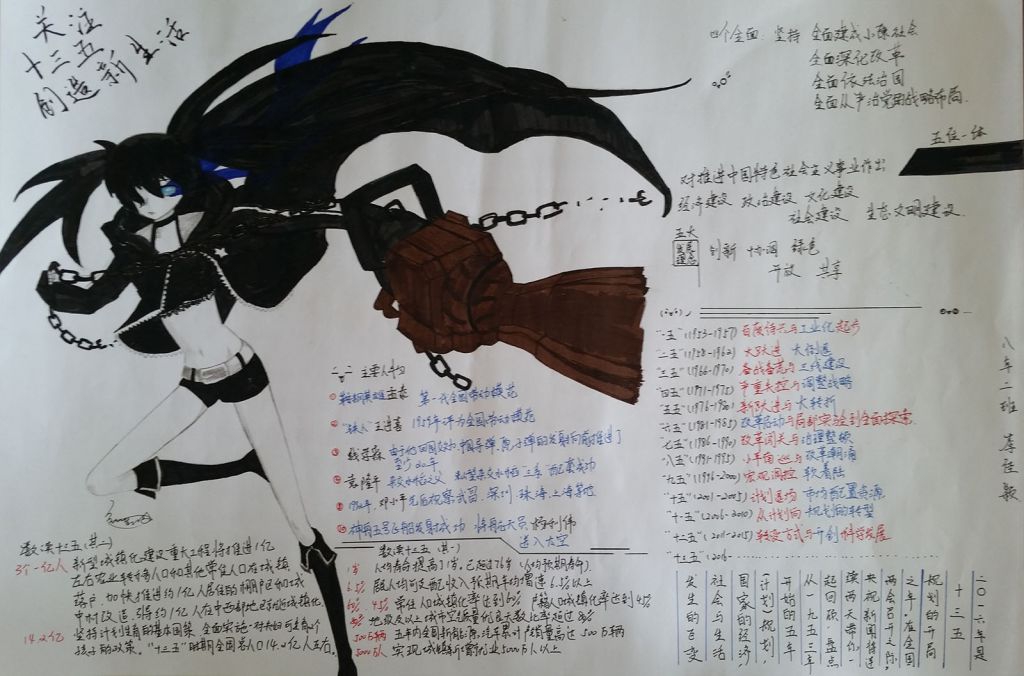 关注
十三五
创造新生活
四个全面: 坚持 全面建成小康社会
全面深化改革
全面依法治国
全面从严治党的战略布局.
五位一体
对推进中国特色社会主义事业作出
经济建设 政治建设 文化建设
社会建设 生态文明建设.
五大
发展
理念
创新 协调 绿色
开放 共享
"一五"(1953-1957) 百废待兴与工业化起步
"二五"(1958-1962) 大跃进 大倒退
"三五"(1966-1970) 备战备荒与三线建设
"四五"(1971-1975) 严重失控与调整战略
"五五"(1976-1980) 新跃进与大转折
"六五"(1981-1985) 改革启动与局部实验到全面探索
"七五"(1986-1990) 改革闯关与治理整顿
"八五"(1991-1995) 小平南巡与改革潮涌
"九五"(1996-2000) 宏观调控 软着陆
"十五"(2001-2005) 计划退场 市场配置资源
"十一五"(2006-2010) 从计划向规划的转型
"十二五"(2011-2015) 转变方式与开创科学发展
"十三五"(2016-
八年二班
主要人物
① 鞍钢英雄孟泰 第一代全国劳动模范
② "铁人"王进喜 1959年评为全国劳动模范
③ 钱学森 由于他回国效力,中国导弹、原子弹的发射向前推进了
至少20年
④ 袁隆平 杂交水稻之父 籼型杂交水稻 三系 配套成功
⑤ 1992年,邓小平先后视察武昌、深圳、珠海、上海等地
⑥ 神舟五号飞船发射成功 将航天员杨利伟
送入太空
数读十三五(其二)
3个一亿人 新型城镇化建设重大工程:将推进1亿
左右农业转移人口和其他常住人口在城镇
落户,加快推进约1亿人居住的棚户区和城
中村改造,引导约1亿人在中西部地区就近城镇化.
14.2亿 坚持计划生育的基本国策,全面实施一对夫妇可生育2个
孩子的政策。"十三五"时期全国总人口14.2亿人左右.
数读十三五(其一)
1岁 人均寿命提高了1岁,已超过76岁(人均预期寿命).
6.5% 居民人均可支配收入预期年均增速6.5%以上
60% 45% 常住人口城镇化率达到60% 户籍人口城镇化率达到45%
80% 地级及以上城市空气质量优良天数比率超过80%
500万辆 五年内全国新能源汽车累计产销量高达500万辆
5000万人 实现城镇新增就业5000万人以上
二〇一六年是
十三五
规划的开局
之年,在全国
两会召开之际,
央视新闻将连
续两天带你一
起回顾、盘点
从一九五三年
开始的五年
(计划)规划,
国家的经济、
社会与生活
发生的百变